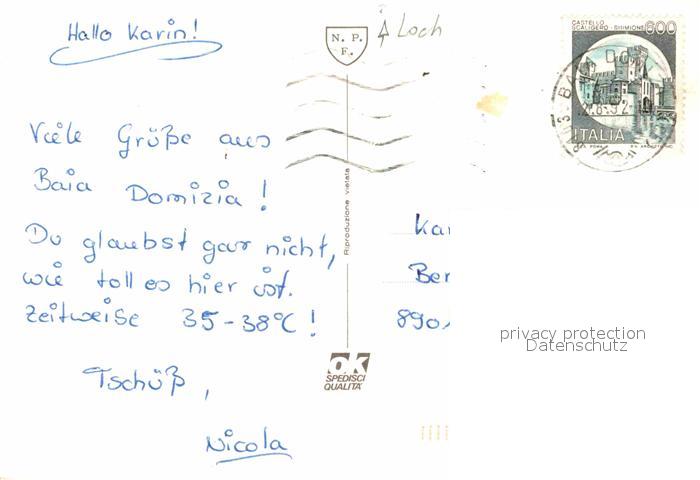 Hallo Karin!
N. P.
F.
Loch
CASTELLO
SCALIGERO - SIRMIONE
600
ITALIA
Viele Grüße aus
Baia Domizia!
Du glaubst gar nicht,
wie toll es hier ist.
Zeitweise 35-38°C!
Tschüß,
Nicola
Riproduzione vietata
OK
SPEDISCI
QUALITÀ
Kar
Ber
890
privacy protection
Datenschutz